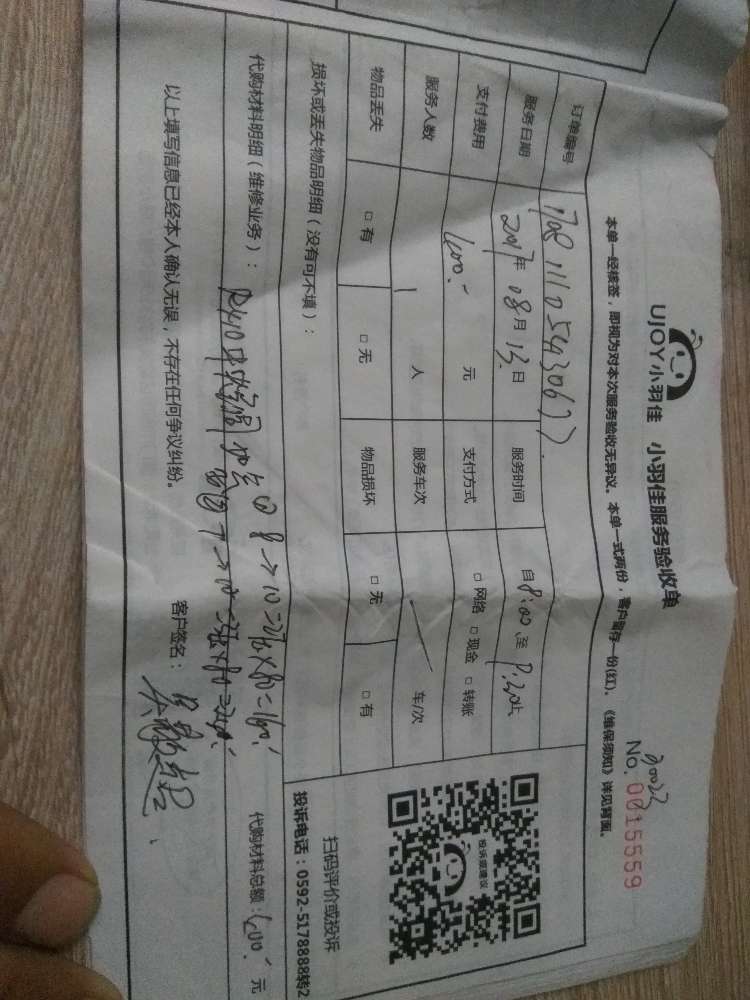 UJOY小羽佳 小羽佳服务验收单
30022
No. 0015559
本单一经核签，即视为对本次服务验收无异议。本单一式两份，客户留存一份(红)，《维保须知》详见背面。
订单编号
服务日期 2017年 08月 13日 服务时间 自8:00至
支付费用 400.- 元 支付方式 □ 网络 □ 现金 □ 转账
服务人数 1 人 服务车次 车/次
物品丢失 □ 有 □ 无 物品损坏 □ 无 □ 有
损坏或丢失物品明细（没有可不填）：
扫码评价或投诉
投诉建议
投诉电话：0592-5178888转2
代购材料明细（维修业务）： 8→10=2 ×80=160.
代购材料总额：400. 元
以上填写信息已经本人确认无误，不存在任何争议纠纷。 客户签名：